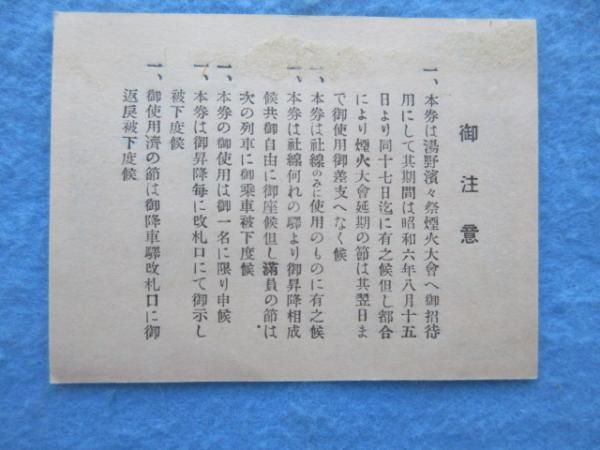 御注意
一、本券は湯野濱々祭煙火大會へ御招待
用にして其期間は昭和六年八月十五
日より同十七日迄に有之候但し都合
により煙火大會延期の節は其翌日ま
で御使用御差支へなく候
一、本券は社線のみに使用のものに有之候
一、本券は社線何れの驛より御昇降相成
候共御自由に御座候但し滿員の節は
次の列車に御乘車被下度候
一、本券の御使用は御一名に限り申候
一、本券は御昇降每に改札口にて御示し
被下度候
一、御使用濟の節は御降車驛改札口に御
返戾被下度候